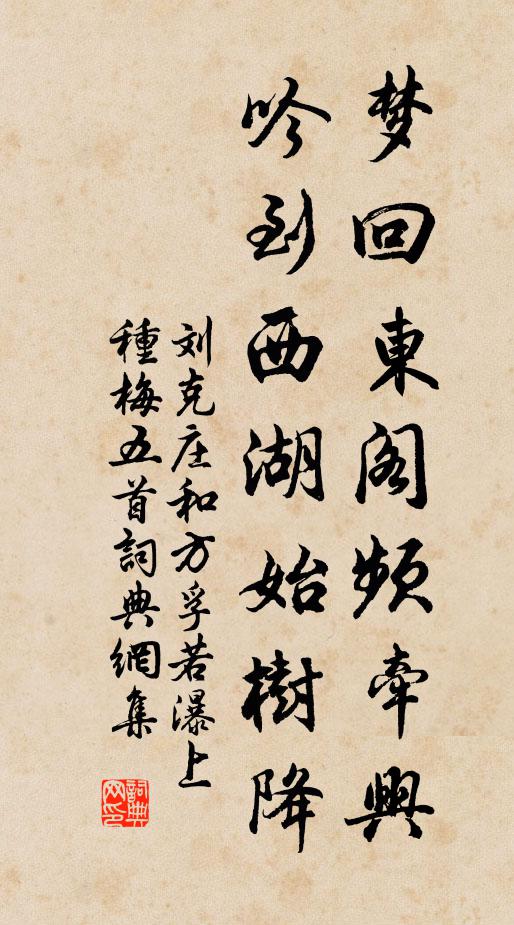 梦回東阁频牵興
吟到西湖始樹降
刘克庄和方孚若瀑上
種梅五首詞典網集
詞典网印